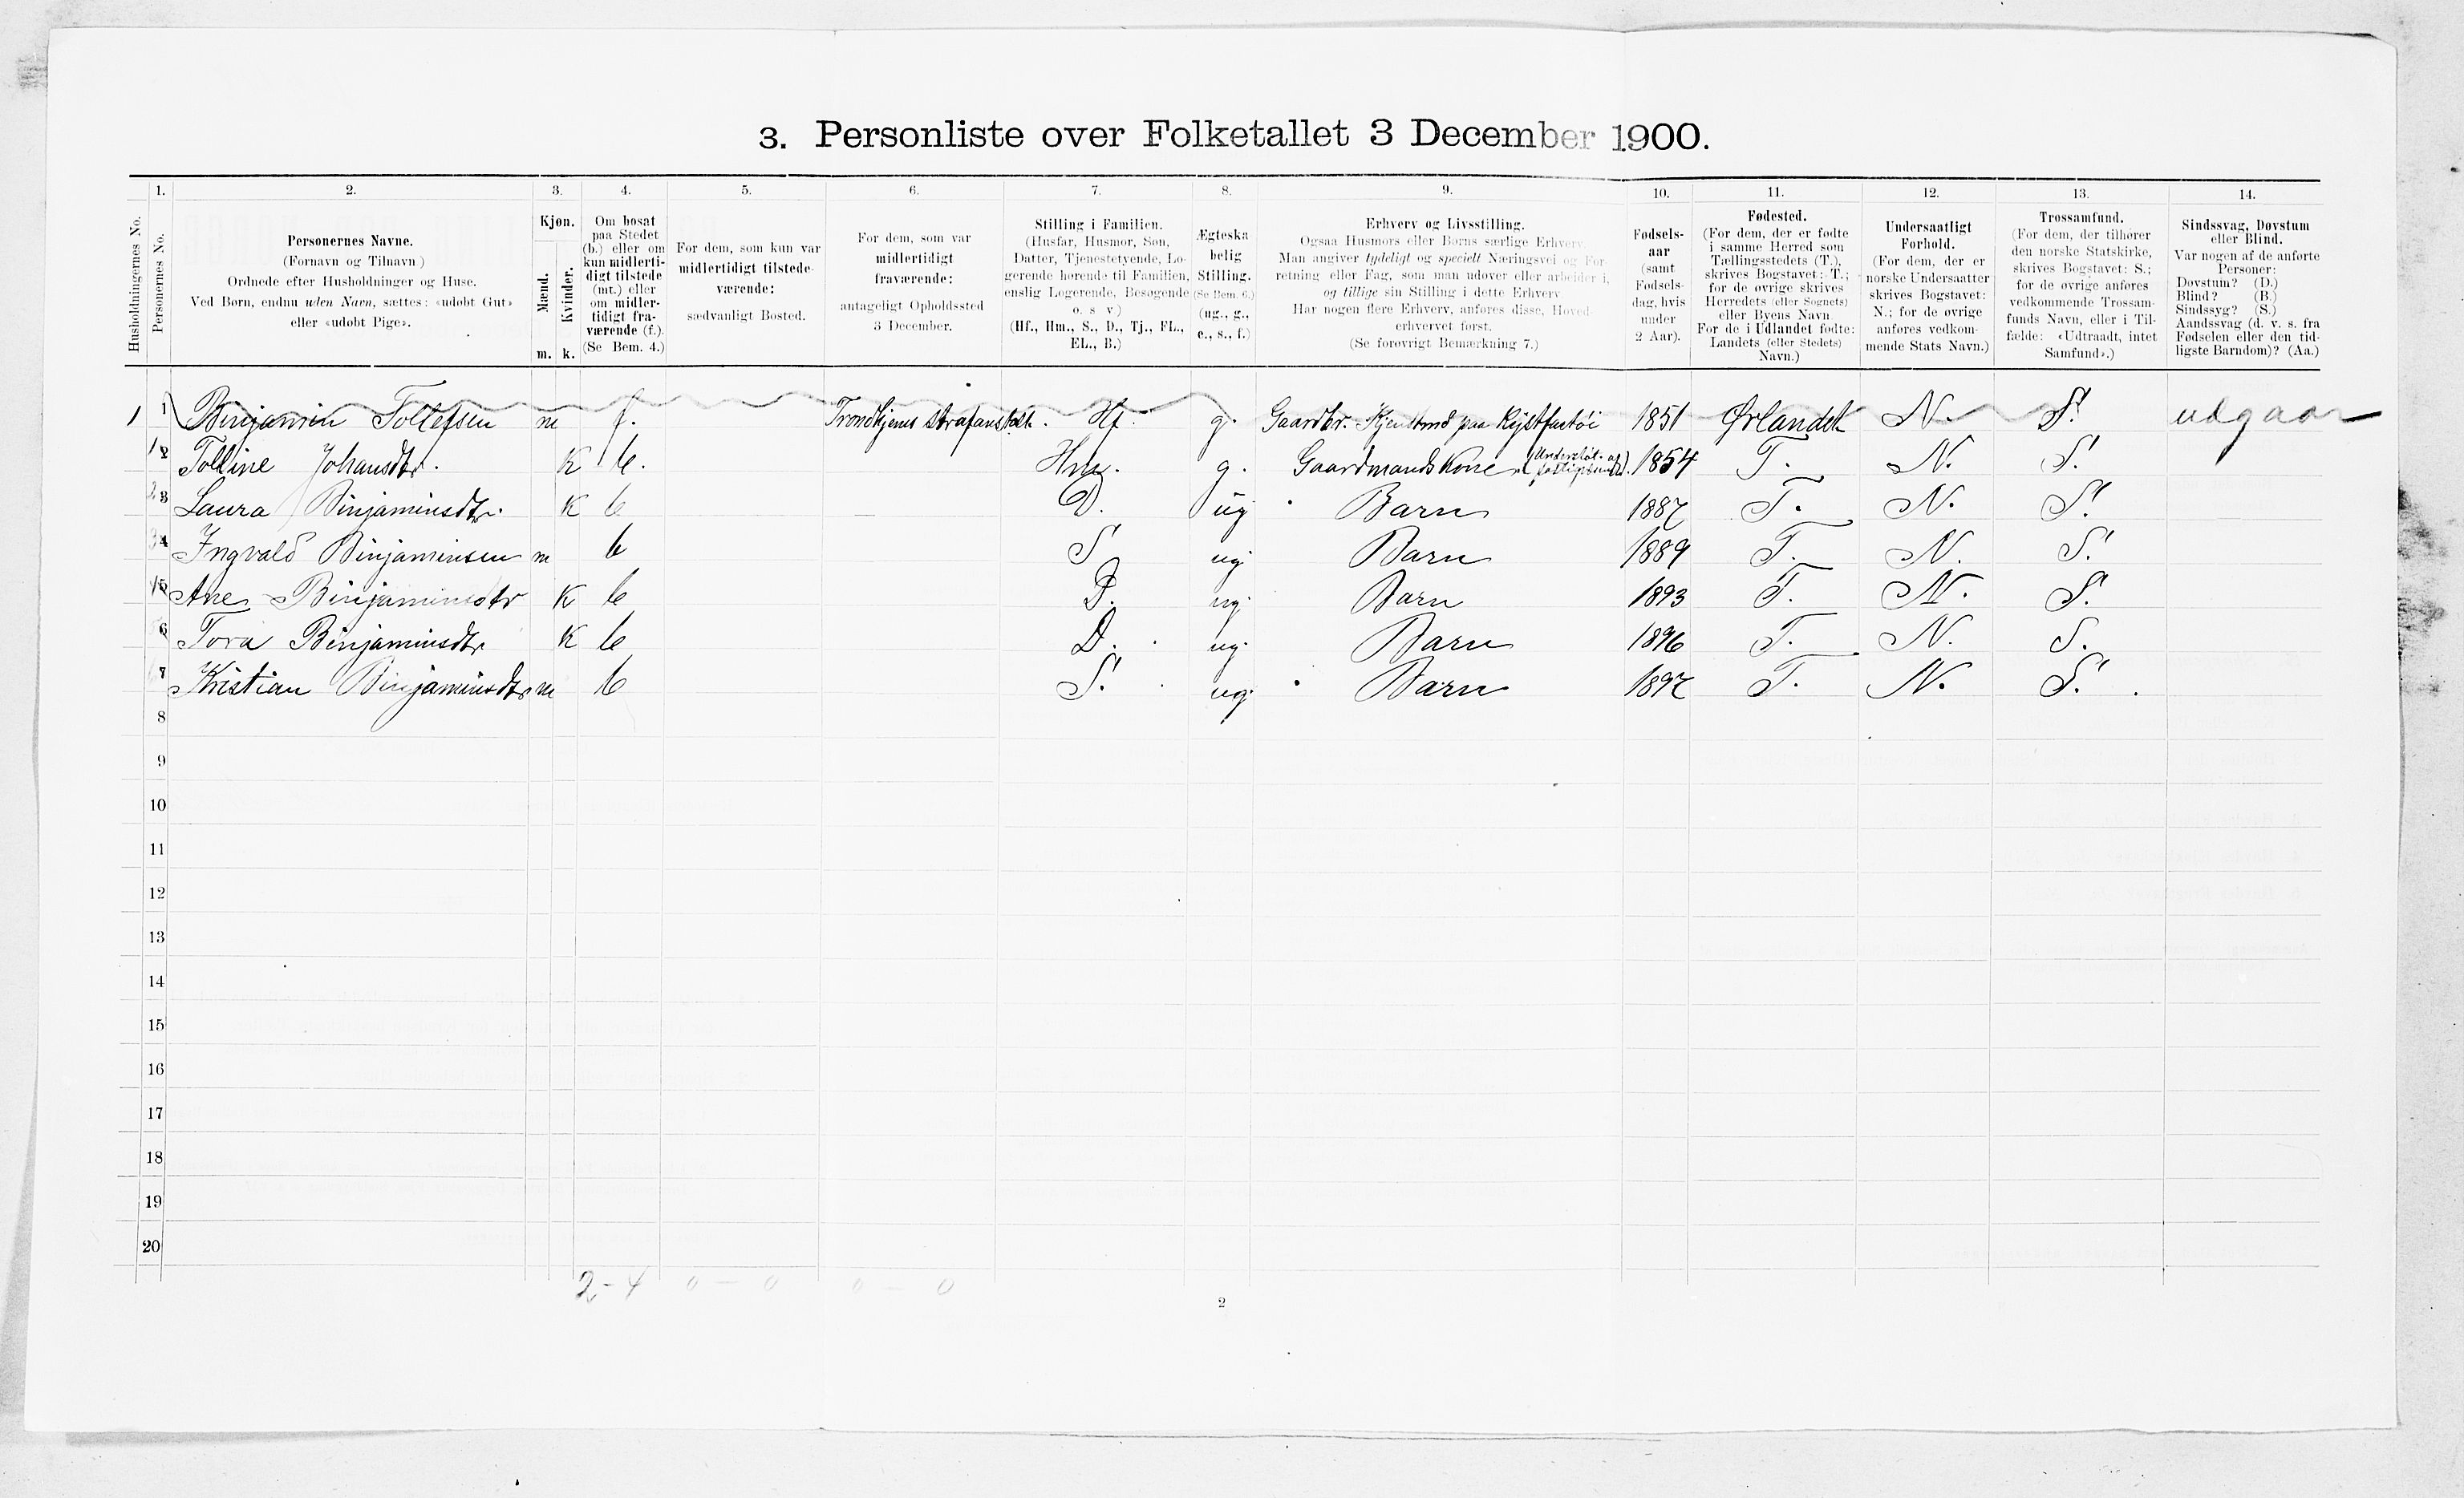 3. Personliste over Folketallet 3 December 1900.
1. 2. 3. 4. 5. 6. 7. 8. 9. 10. 11. 12. 13. 14.
Husholdningernes No.
Personernes No.
Personernes Navne.
(Fornavn og Tilnavn.)
Ordnede efter Husholdninger og Huse.
Ved Børn, endnu uden Navn, sættes: «udøbt Gut»
eller «udøbt Pige».
Kjøn.
Mænd.
Kvinder.
m. k.
Om bosat
paa Stedet
(b.) eller om
kun midlerti-
digt tilstede
(mt.) eller
om midler-
tidigt fra-
værende (f.).
(Se Bem. 4.)
For dem, som kun var
midlertidigt tilstede-
værende:
sædvanligt Bosted.
For dem, som var
midlertidigt
fraværende:
antageligt Opholdssted
3 December.
Stilling i Familien.
(Husfar, Husmor, Søn,
Datter, Tjenestetyende, Lo-
gerende hørende til Familien,
enslig Logerende, Besøgende
o. s v.)
(Hf., Hm., S., D., Tj., FL.,
EL., B.)
Ægteska
belig
Stilling.
(Se Bem. 6.)
(ug., g.,
e., s., f.)
Erhverv og Livsstilling.
Ogsaa Husmors eller Børns særlige Erhverv.
Man angiver tydeligt og specielt Næringsvei og For-
retning eller Fag, som man udøver eller arbeider i,
og tillige sin Stilling i dette Erhverv
Har nogen flere Erhverv, anføres disse, Hoved-
erhvervet først.
(Se forøvrigt Bemærkning 7.)
Fødsels-
aar
(samt
Fødsels-
dag, hvis
under
2 Aar).
Fødested.
(For dem, der er fødte
i samme Herred som
Tællingsstedets (T.),
skrives Bogstavet: T.;
for de øvrige skrives
Herredets (eller Sognets)
eller Byens Navn
For de i Udlandet fødte:
Landets (eller Stedets)
Navn.)
Undersaatligt
Forhold.
(For dem, der er
norske Undersaatter
skrives Bogstavet:
N.; for de øvrige
anføres vedkom-
mende Stats Navn.)
Trossamfund.
(For dem, der tilhører
den norske Statskirke,
skrives Bogstavet: S.;
for de øvrige anføres
vedkommende Trossam-
funds Navn, eller i Til-
fælde: «Udtraadt, intet
Samfund».)
Sindssvag, Døvstum
eller Blind.
Var nogen af de anførte
Personer:
Døvstum? (D.)
Blind? (B.)
Sindssyg? (S.)
Aandssvag (d. v. s. fra
Fødselen eller den tid-
ligste Barndom)? (Aa.)
1 1 Binjamin Tollefsen m f. Trondhjems strafanstalt. Hf. g. Gaardbr. 1851 Ørlandet N. S. udgaar
2 Tolline Johansdtr. K b. Hm. g. Gaardmandskone 1854 T. N. S.
3 Laura Binjaminsdtr. K b D. ug Barn 1887 T. N. S.
4 Ingvald Binjaminsen m b S. ug Barn 1889 T. N. S.
5 Ane Binjaminsdtr K b D. ug. Barn 1893 T. N. S.
6 Tora Binjaminsdtr K b D. ug. Barn 1896 T. N. S.
7 Kristian Binjaminsdtr m b S. ug. Barn 1897 T. N. S.
8
9
10
11
12
13
14
15
16
17
18
19
20
2-4 0 - 0 0 - 0
2